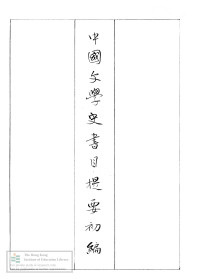 中國文學史書目提要初編
The Hong Kong
Institute of Education Library